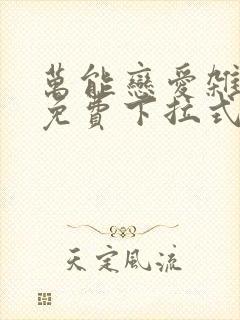 萬能戀愛雜
免費下拉式
天定風流